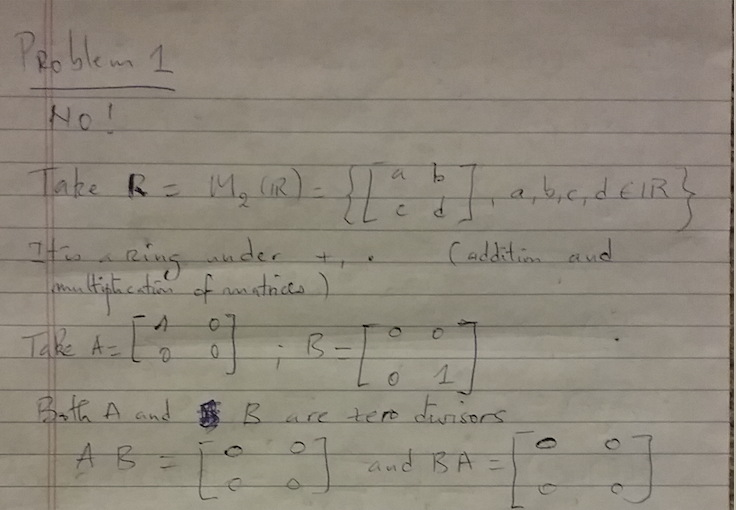 Problem 1
No!
Take R = M₂(ℝ) = {[a b; c d], a, b, c, d ∈ ℝ}
It is a ring under +, · (addition and
multiplication of matrices)
Take A = [1 0; 0 0] ; B = [0 0; 0 1]
Both A and B are zero divisors
A B = [0 0; 0 0] and B A = [0 0; 0 0]